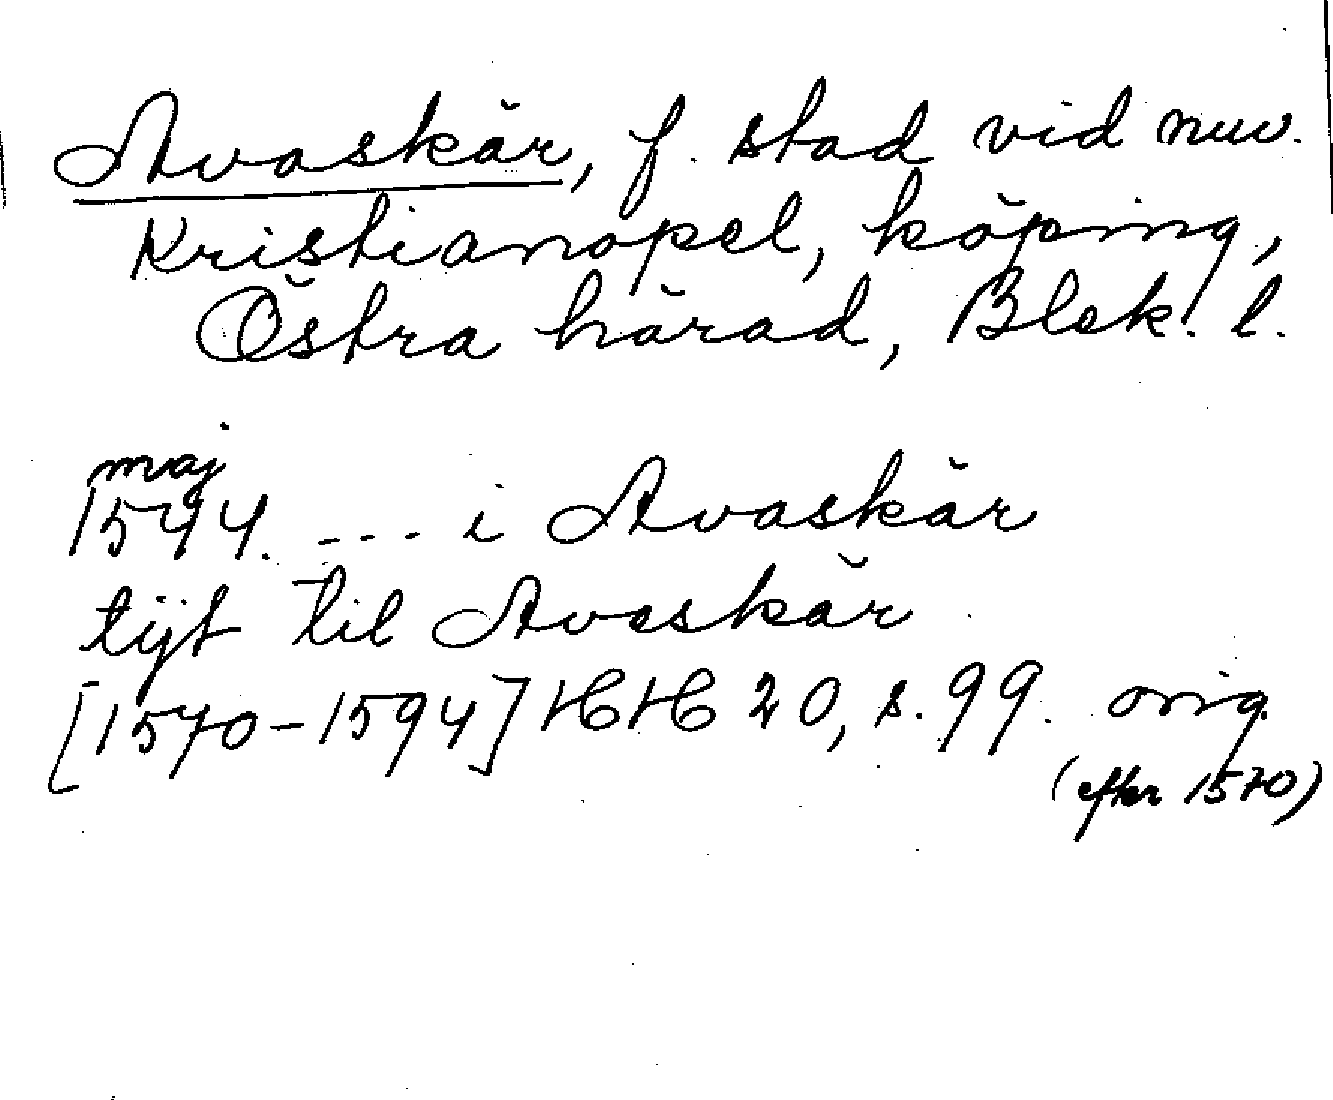 Avaskär, f. stad vid nuv.
Kristianopel, köping,
Östra härad, Blek. l.
maj
1544. --- i Avaskär
tijt til Avaskär
[1570-1594] HH 20, s. 99. orig.
(efter 1570)